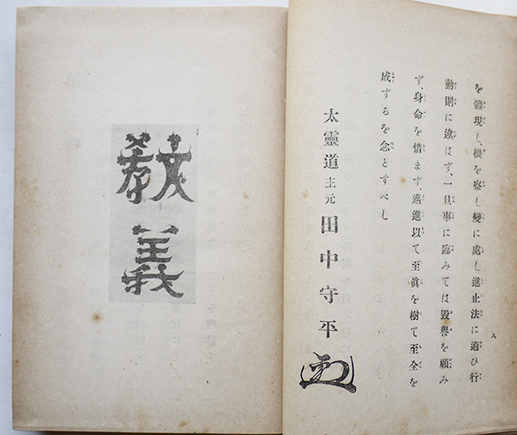 を發現し、機を察し變に處し進止法に適ひ行
動則に違はず、一旦事に臨みては毀譽を顧み
ず、身命を惜まず、邁進以て至眞を樹て至全を
成するを念とすべし
太靈道主元 田中守平
教義